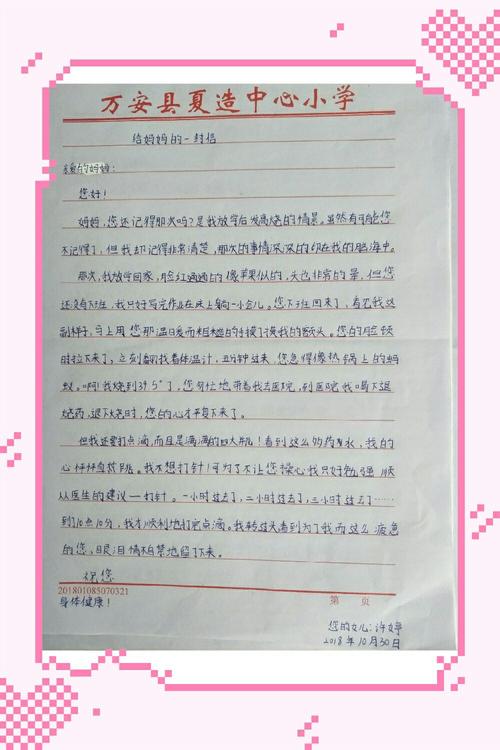 万安县夏造中心小学
给妈妈的一封信
亲爱的妈妈:
您好!
妈妈,您还记得那次吗?是我放学后发高烧的情景。虽然有可能您
不记得了,但我却记得非常清楚,那次的事情深深的印在我的脑海中。
那次,我放学回家,脸红通通的像苹果似的,头也非常的晕,但您
还没有下班,我只好写完作业在床上躺一小会儿。您下班回来了,看见我这
副样子,马上用您那温暖而粗糙的手摸了摸我的额头。您的脸顿
时拉下来了,立刻翻找着体温计,五分钟过来,您急得像热锅上的蚂
蚁。啊!我烧到39.5°了,您匆忙地带着我去医院,到医院我喝下退
烧药,退下烧时,您的心才平复下来了。
但我还要打点滴,而且是满满的四大瓶!看到这么多的药水,我的
心怦怦直跳。我不想打针!可为了不让您操心我只好勉强顺
从医生的建议—打针。一小时过去了,二小时过去了,三小时过去了……
到了10点10分,我才顺利地打完点滴。我转过头看到为了我而这么疲惫
的您,眼泪情不自禁地留了下来。
祝您
201801085070321
第 页
身体健康!
您的女儿:许婷
2018年10月30日